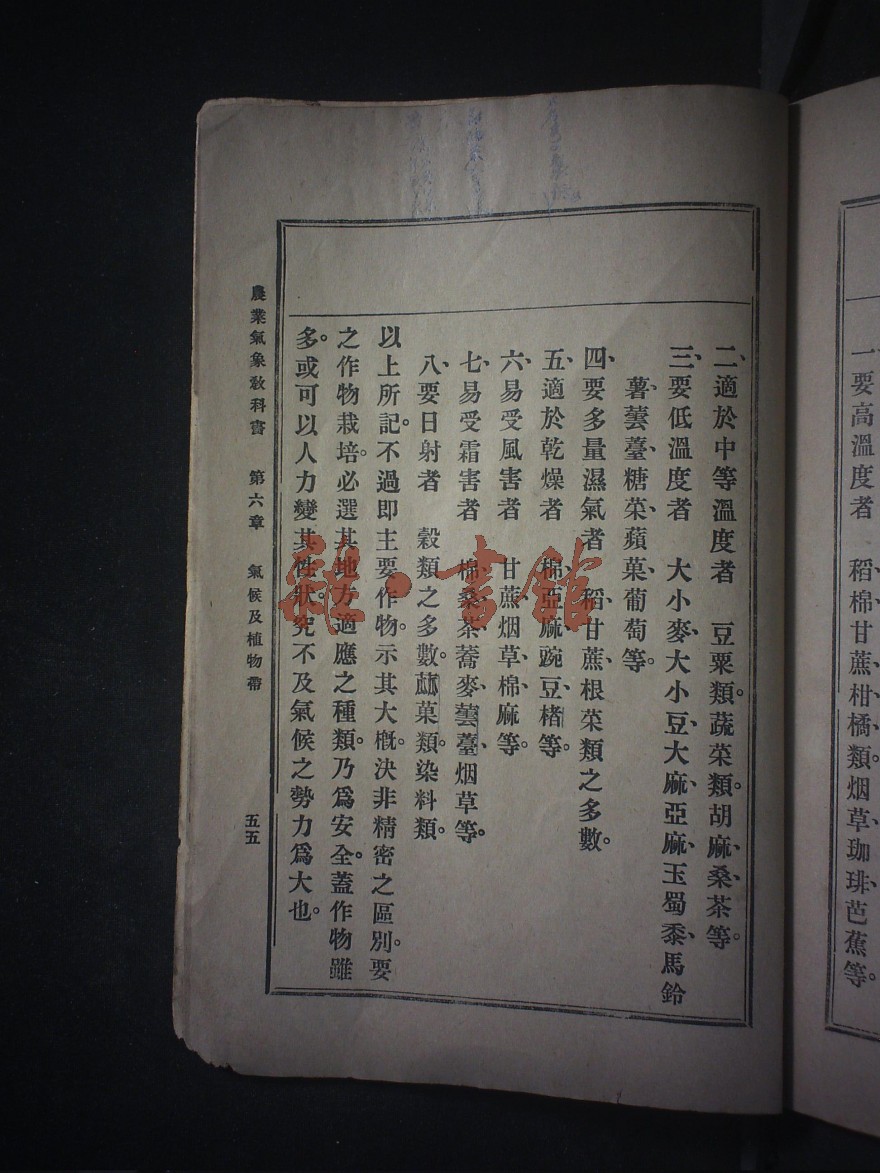 一、要高溫度者　稻、棉、甘蔗、柑橘類。烟草、珈琲、芭蕉等。
二、適於中等溫度者　豆粟類。蔬菜類。胡麻、桑、茶等。
三、要低溫度者　大小麥、大小豆、大麻、亞麻、玉蜀黍、馬鈴
薯、蕓薹、糖菜、蘋菓、葡萄等。
四、要多量濕氣者　稻、甘蔗、根菜類之多數。
五、適於乾燥者　棉、亞麻、豌豆、楮等。
六、易受風害者　甘蔗、烟草、棉、麻等。
七、易受霜害者　棉、桑、茶、蕎麥、蕓薹、烟草等。
八、要日射者　穀類之多數。蓏菓類。染料類。
以上所記。不過即主要作物。示其大槪。決非精密之區別。要
之作物栽培。必選其地方適應之種類。乃爲安全。蓋作物雖
多。或可以人力變其性狀。究不及氣候之勢力爲大也。
農業氣象敎科書　第六章　氣候及植物帶　五五
雜·書館